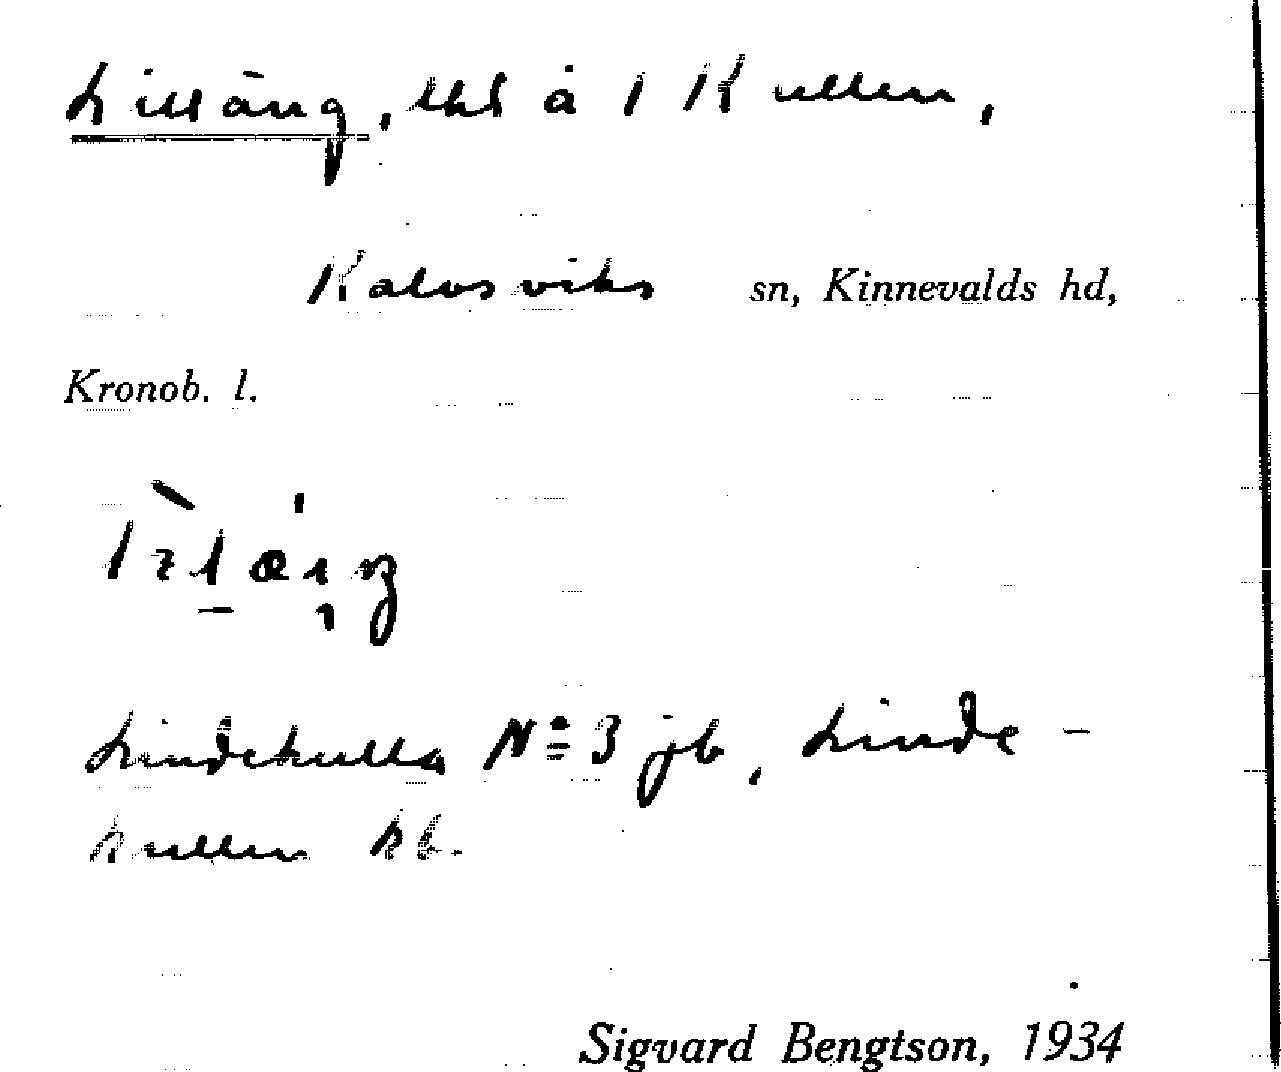 Lilläng, lht å 1 Kullen,
Kalvsviks sn, Kinnevalds hd,
Kronob. l.
Lindekulla Nº 3 jb, Linde-
kullen kb.
Sigvard Bengtson, 1934